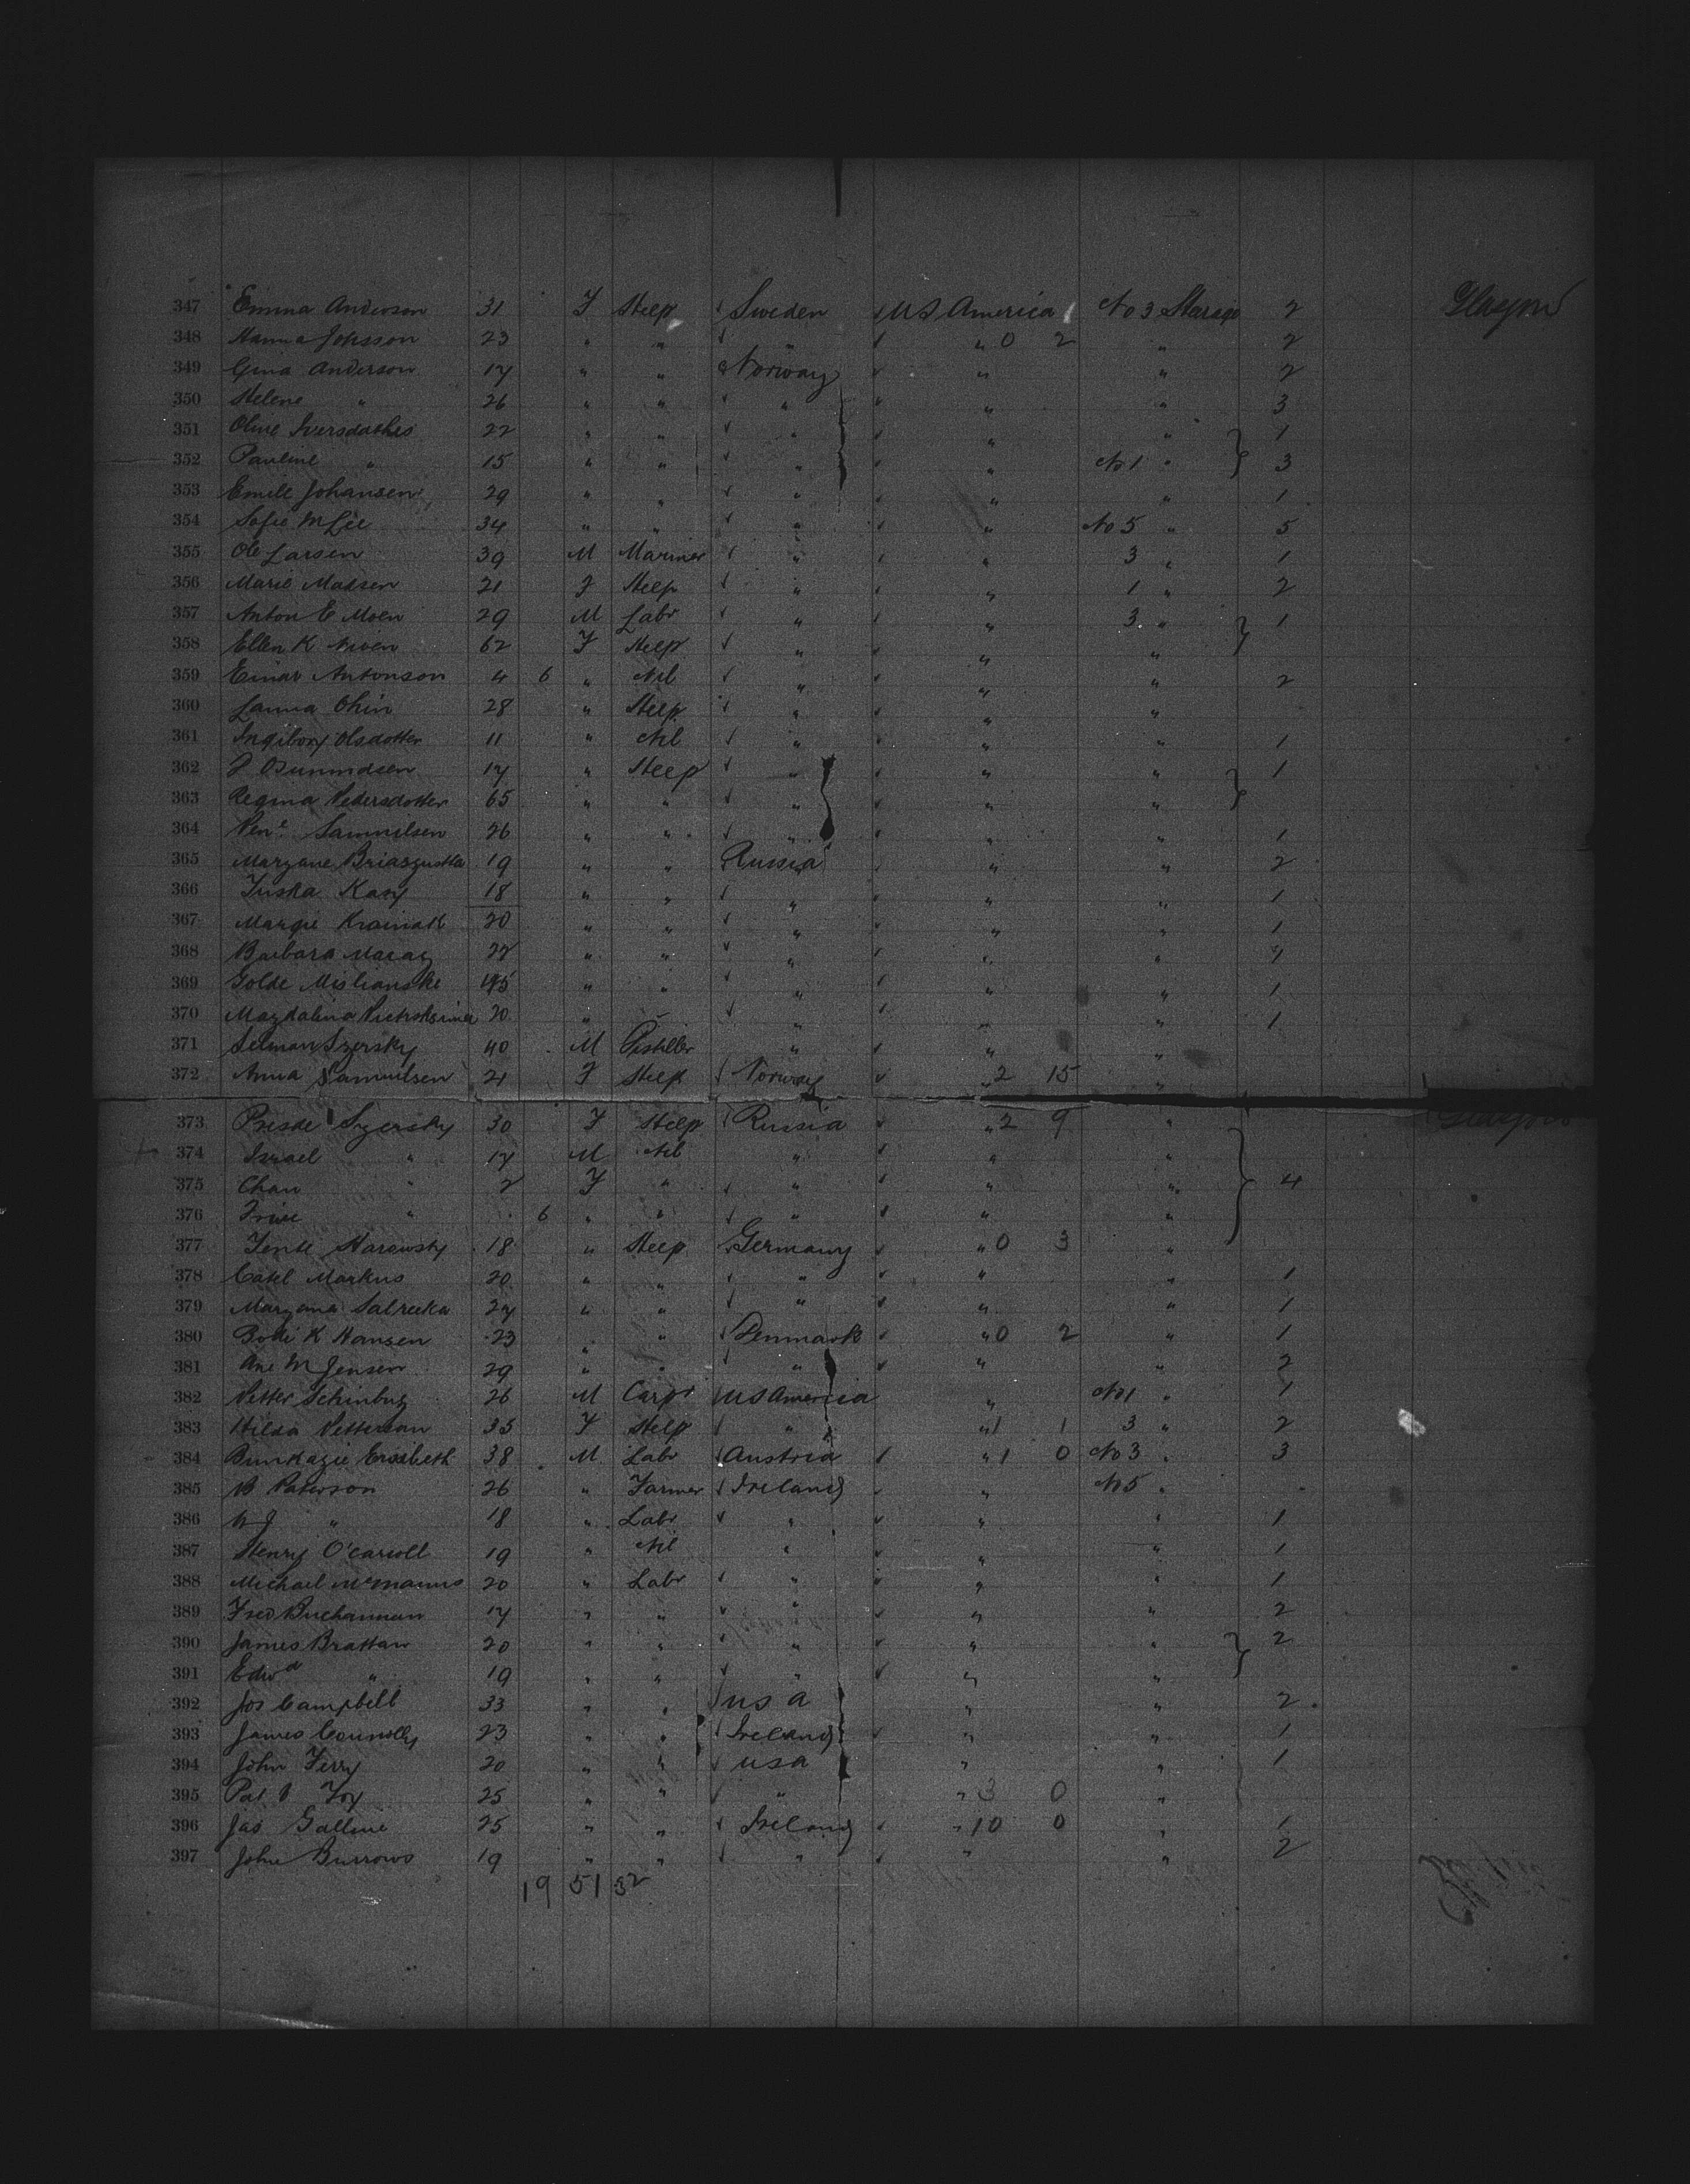 347 Emma Anderson 31 F Help Sweden U S America No 3 Steerage 2 Glasgow
348 Hanna Johsson 23 " " " " 0 2 " 2
349 Gina Anderson 17 " " Norway " " 2
350 Helene " 26 " " " " " 3
351 Oline 22 " " " " " 1
352 Pauline " 15 " " " " No 1 " 3
353 Emile Johansen 29 " " " " " 1
354 Sofie M Lie 34 " " " " No 5 " 5
355 Ole Larsen 39 M Mariner " " 3 " 1
356 Marie Madsen 21 F Help " " 1 " 2
357 Anton E Moen 29 M Labr " " 3 " 1
358 Ellen K 62 F Help " " "
359 Einar Antonson 4 6 " Nil " " " 2
360 28 " Help " " "
361 Ingiborg Olsdotter 11 " Nil " " " 1
362 17 " Help " " " 1
363 Regina Pedersdotter 65 " " " " "
364 Samuelsen 26 " " " " " 1
365 Maryane 19 " " Russia " " 2
366 18 " " " " " 1
367 Margie 20 " " " " " 1
368 Barbara 22 " " " " "
369 Golde Mislianske 45 " " " " " 1
370 Magdalina 20 " " " " 1
371 Szersky 40 M " " "
372 Anna Samuelsen 21 F Help Norway " 2 15 "
373 Szersky 30 F Help Russia " 2 9 " Glasgow
374 Israel " 17 M Nil " " "
375 Chan " 2 F " " " " 4
376 " 6 " " " " "
377 18 " Help Germany " 0 3 "
378 Markus 20 " " " " " 1
379 Maryana 27 " " " " " 1
380 K Hansen 23 " " Denmark " 0 2 " 1
381 Ane M Jensen 29 " " " " " 2
382 Petter 26 M Carpr U S America " No 1 " 1
383 Hilda Petterson 35 F Help " " 1 1 3 " 2
384 38 M Labr Austria " 1 0 No 3 " 3
385 Paterson 26 " Farmer Ireland " No 5 "
386 W J " 18 " Labr " " " 1
387 Henry O'Carroll 19 " Nil " " " 1
388 Michael McManus 20 " Labr " " " 1
389 Fred Buchannan 17 " " " " " 2
390 James Brattan 20 " " " " " 2
391 Edwd " 19 " " " " "
392 Jos Campbell 33 " " U S A " " 2
393 James Connolly 23 " " Ireland " " 1
394 John Ferry 20 " " U S A " " 1
395 Pat 25 " " " " 3 0 "
396 Jas 25 " " Ireland " 10 0 " 1
397 John Burrows 19 " " " " " 2
19 51 32